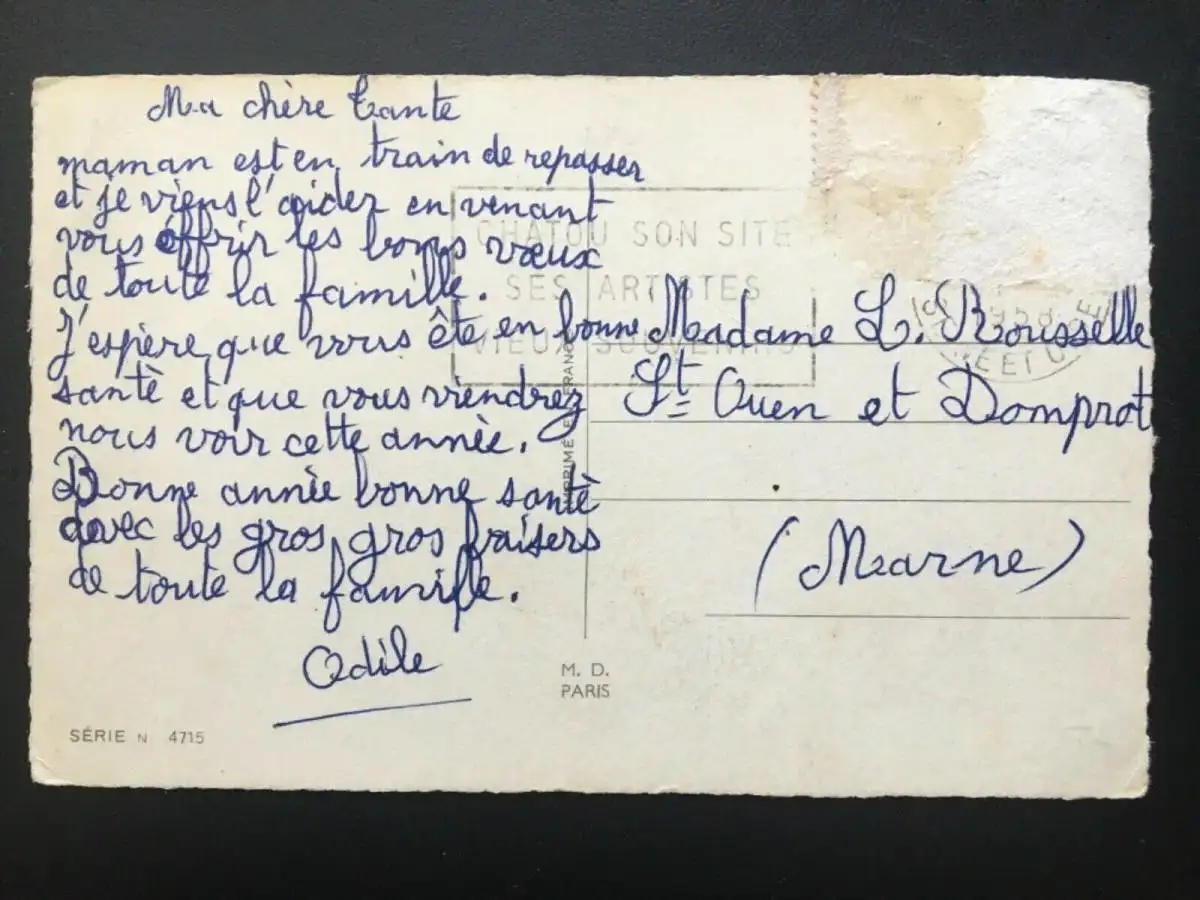 Ma chère tante
maman est en train de repasser
et je viens l'aider en venant
vous offrir les bons vœux
de toute la famille.
J'espère que vous ête en bonne
santè et que vous viendrez
nous voir cette année.
Bonne annèe bonne santè
avec les gros gros baisers
de toute la famille.
Odile
SÉRIE N 4715
CHATOU SON SITE
SES ARTISTES
VIEUX SOUVENIRS
IMPRIMÉ EN FRANCE
M. D.
PARIS
Madame L. Rousselle
St Ouen et Domprot
(Marne)